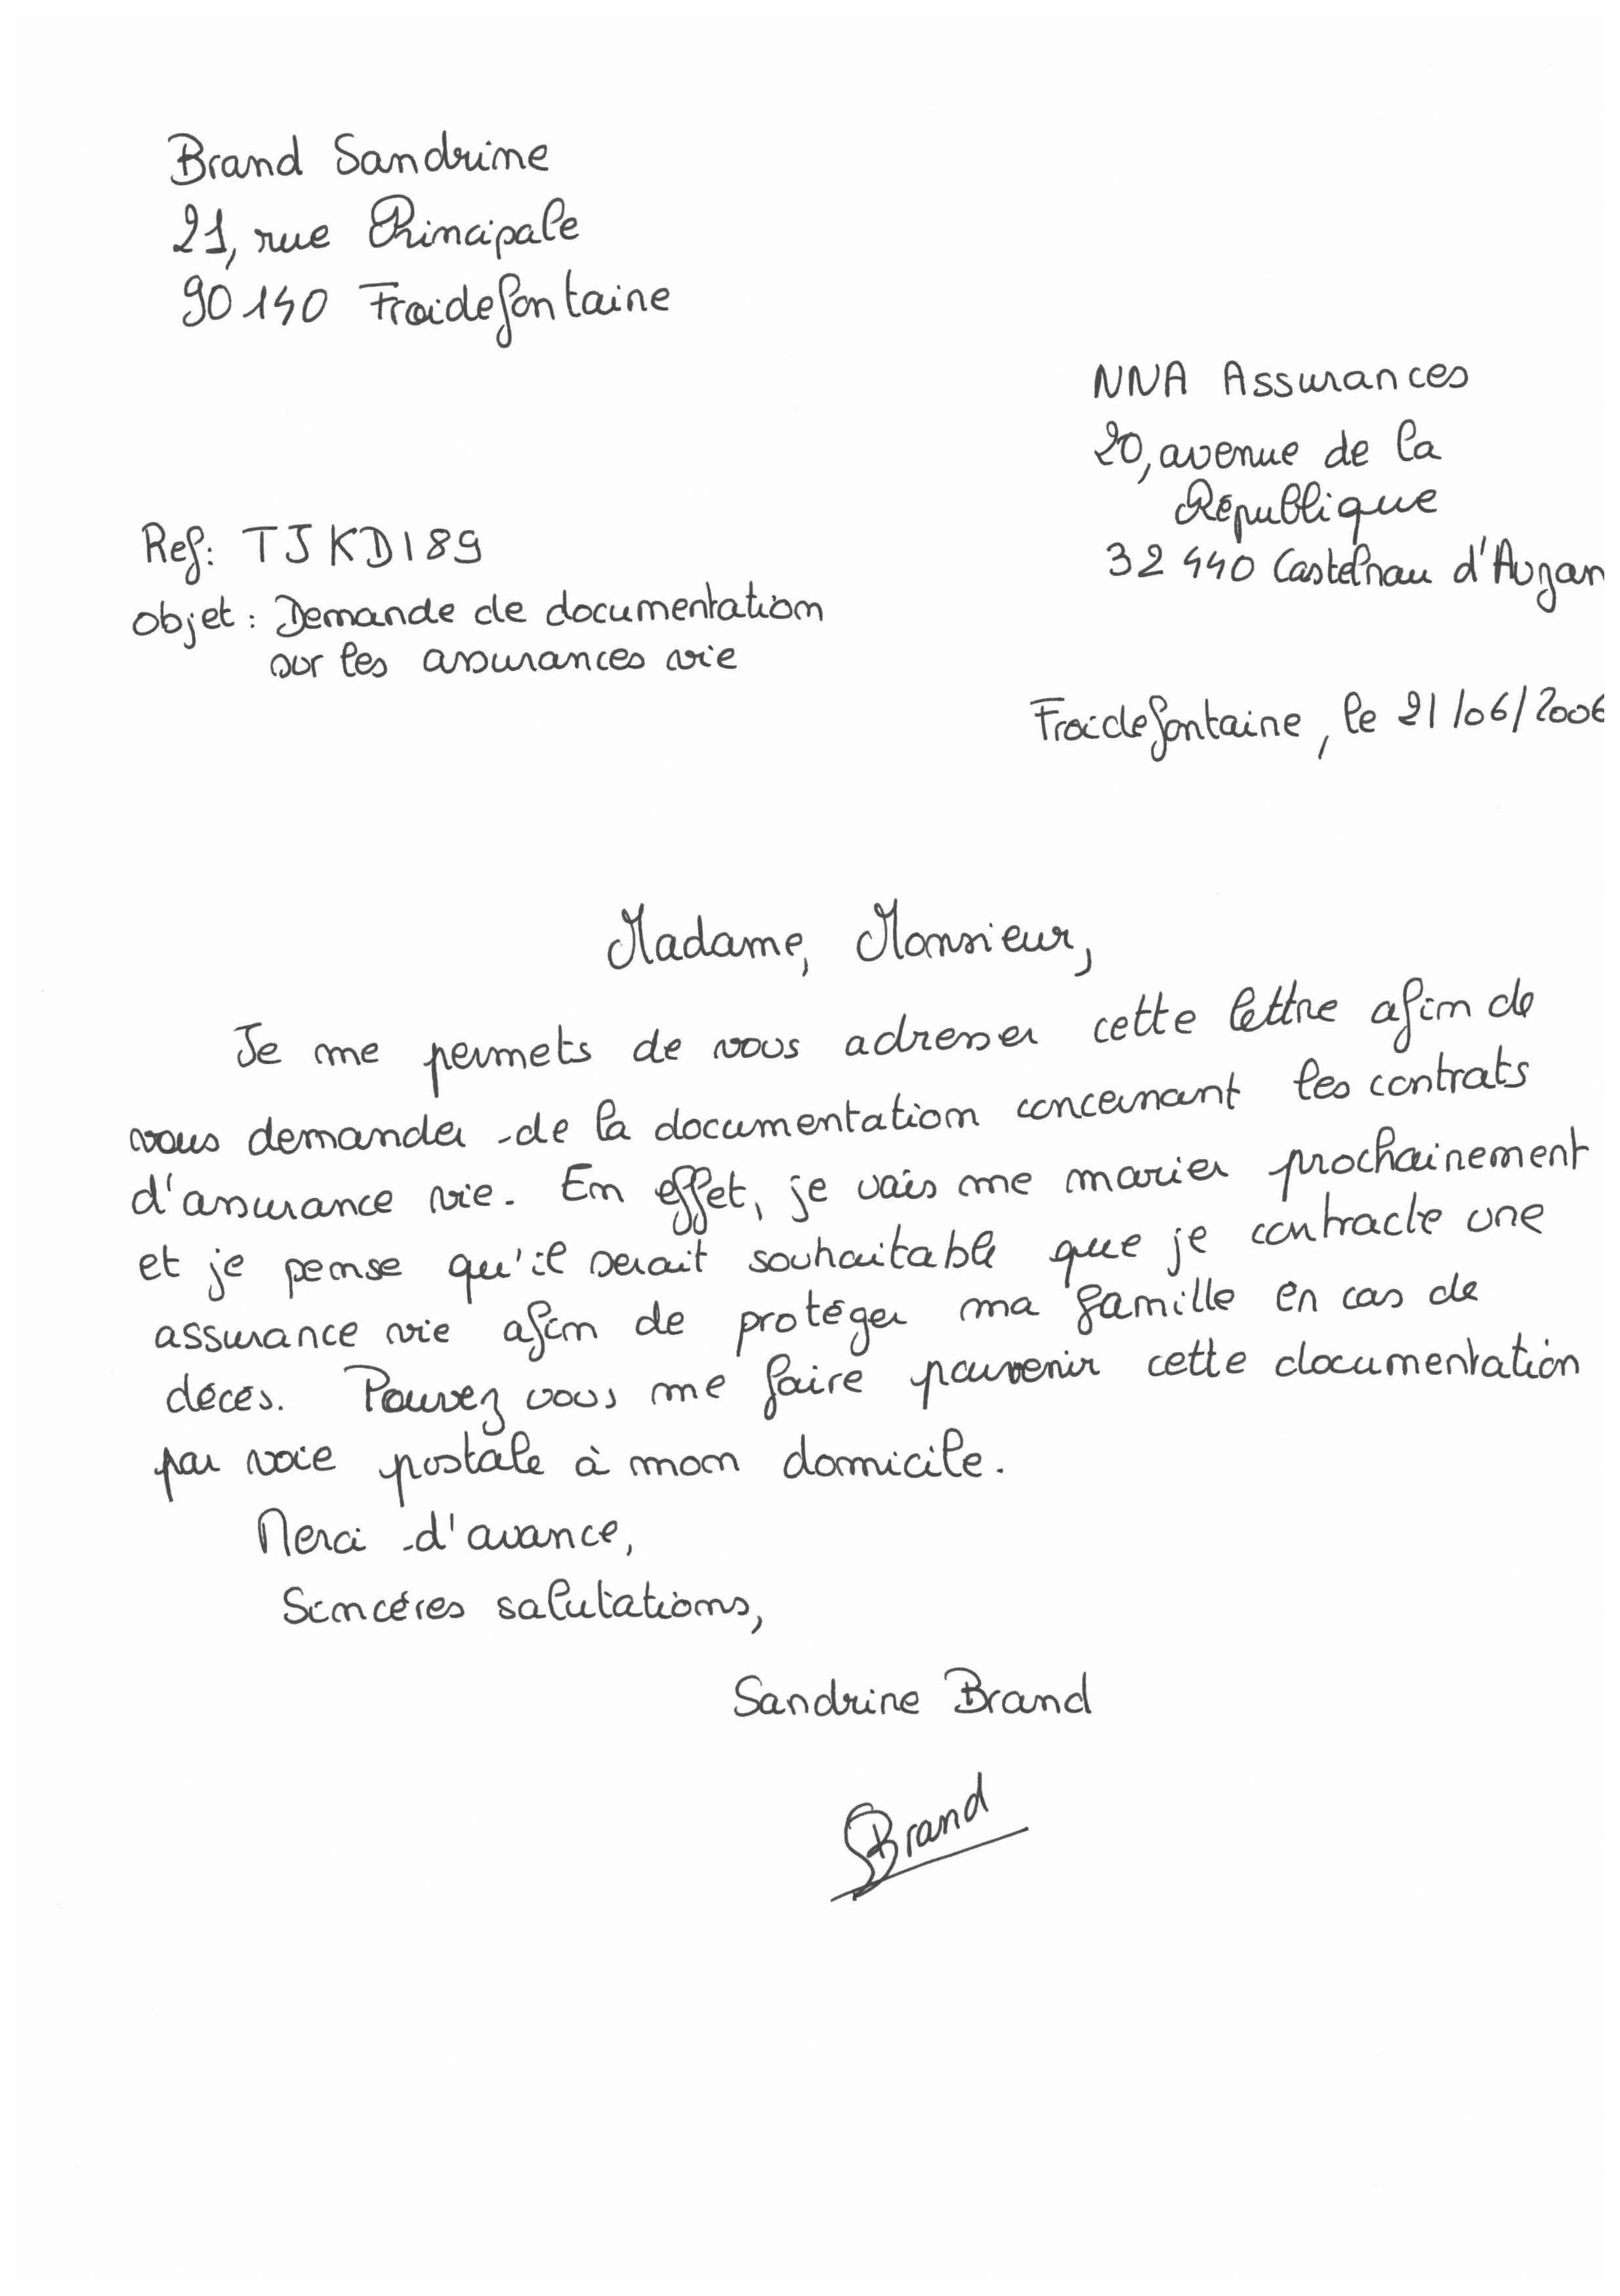 Brand Sandrine
21, rue Principale
90140 Froidefontaine
NNA Assurances
20, avenue de la
République
32 440 Castelnau d'Auzan
Ref: TJKD189
objet : Demande de documentation
sur les assurances vie
Froidefontaine, le 21/06/2006
Madame, Monsieur,
Je me permets de vous adresser cette lettre afin de
vous demander de la documentation concernant les contrats
d'assurance vie. En effet, je vais me marier prochainement
et je pense qu'il serait souhaitable que je contracte une
assurance vie afin de protéger ma famille en cas de
décès. Pouvez vous me faire parvenir cette documentation
par voie postale à mon domicile.
Merci d'avance,
Sincéres salutations,
Sandrine Brand
SBrand